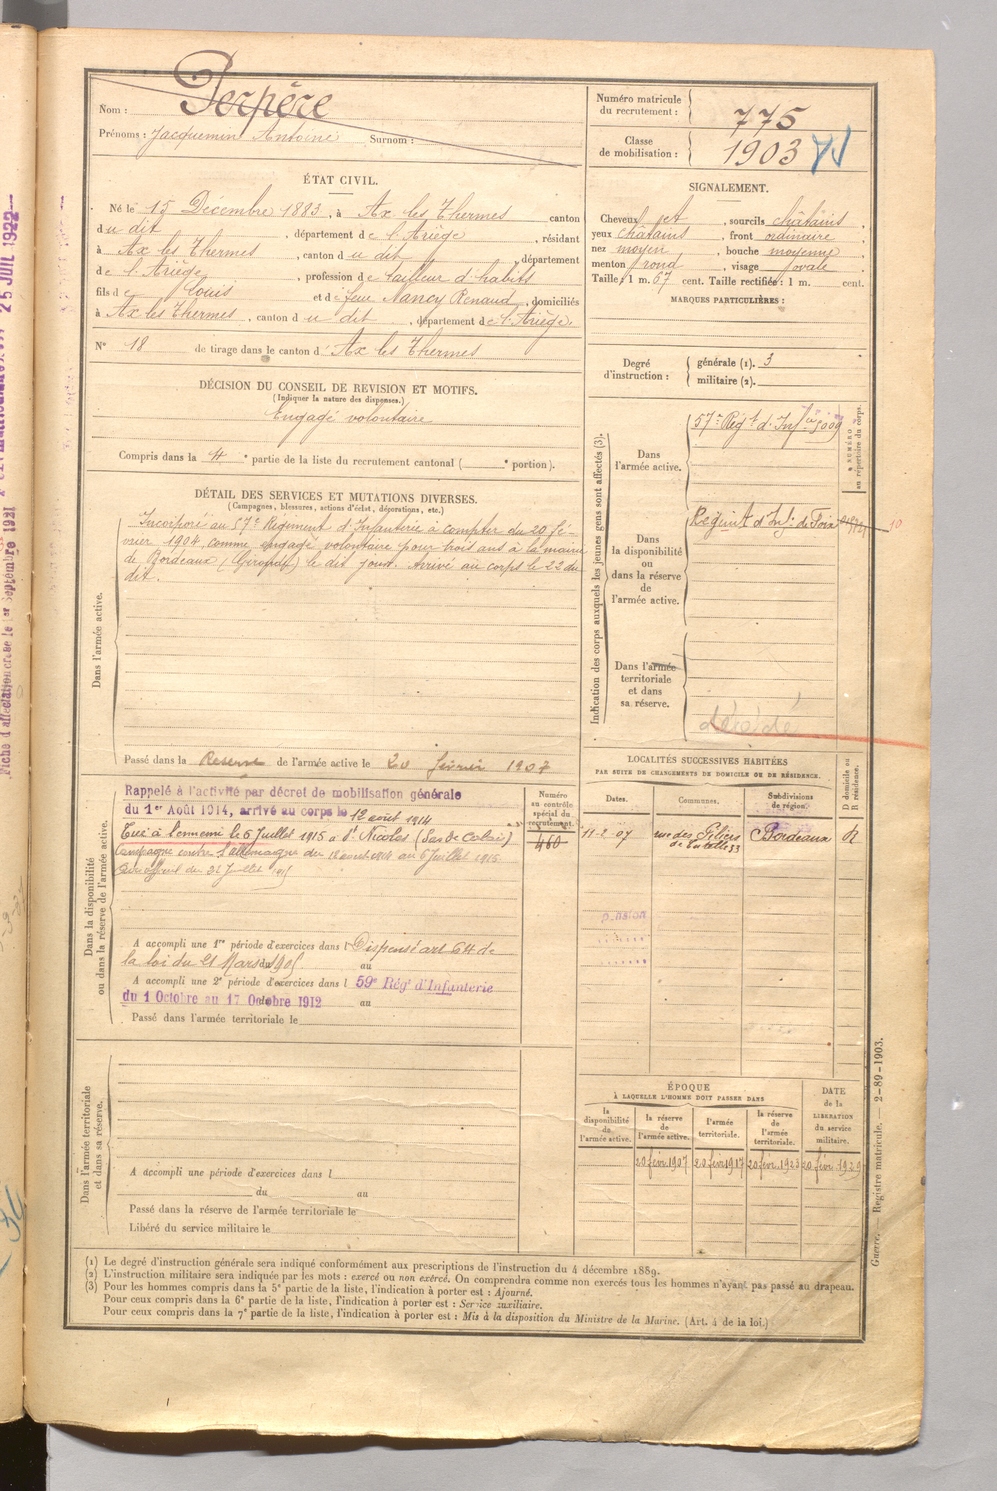 Nom : Perpère
Prénoms : Jacquemin Antoine Surnom :
Numéro matricule du recrutement : 775
Classe de mobilisation : 1903
ÉTAT CIVIL.
Né le 15 Décembre 1883, à Ax les Thermes canton
du dit, département de l'Ariège, résidant
à Ax les Thermes, canton du dit, département
de l'Ariège, profession de tailleur d'habits
fils de Louis et de feue Nancy Renaud, domiciliés
à Ax les Thermes, canton du dit, département de l'Ariège.
N° 18 de tirage dans le canton d'Ax les Thermes
SIGNALEMENT.
Cheveux jet, sourcils châtains,
yeux châtains, front ordinaire,
nez moyen, bouche moyenne,
menton rond, visage ovale.
Taille : 1 m. 67 cent. Taille rectifiée : 1 m. cent.
MARQUES PARTICULIÈRES :
Degré d'instruction : générale (1). 3
militaire (2).
DÉCISION DU CONSEIL DE REVISION ET MOTIFS.
(Indiquer la nature des dispenses.)
Engagé volontaire
Compris dans la 4e partie de la liste du recrutement cantonal (e portion).
DÉTAIL DES SERVICES ET MUTATIONS DIVERSES.
(Campagnes, blessures, actions d'éclat, décorations, etc.)
Dans l'armée active.
Incorporé au 57e Régiment d'Infanterie à compter du 20 fé-
vrier 1904, comme engagé volontaire pour trois ans à la mairie
de Bordeaux (Gironde) le dit jour. Arrivé au corps le 22 du
dit.
Passé dans la Réserve de l'armée active le 20 février 1907
Dans la disponibilité ou dans la réserve de l'armée active.
Rappelé à l'activité par décret de mobilisation générale
du 1er Août 1914, arrivé au corps le 12 août 1914
Tué à l'ennemi le 6 Juillet 1915 à St Nicolas (Pas de Calais)
Campagne contre l'Allemagne du 12 août 1914 au 6 Juillet 1915
A accompli une 1re période d'exercices dans l Dispensé art 64 de
la loi du 21 Mars 1905 au
A accompli une 2e période d'exercices dans l 59e Régt d'Infanterie
du 1 Octobre au 17 Octobre 1912 au
Passé dans l'armée territoriale le
Numéro au contrôle spécial du recrutement.
460
Dans l'armée territoriale et dans sa réserve.
A accompli une période d'exercices dans l
du au
Passé dans la réserve de l'armée territoriale le
Libéré du service militaire le
Indication des corps auxquels les jeunes gens sont affectés (3).
NUMÉRO au répertoire du corps.
Dans l'armée active.
57e Régt d'Infie
Dans la disponibilité ou dans la réserve de l'armée active.
Régint d'Inf: de Foix
10
Dans l'armée territoriale et dans sa réserve.
décédé
LOCALITÉS SUCCESSIVES HABITÉES
PAR SUITE DE CHANGEMENTS DE DOMICILE OU DE RÉSIDENCE.
Dates. Communes. Subdivisions de région. D domicile ou R résidence.
11-2-07 rue des Bordeaux R
ÉPOQUE
À LAQUELLE L'HOMME DOIT PASSER DANS
la disponibilité de l'armée active.
la réserve de l'armée active.
l'armée territoriale.
la réserve de l'armée territoriale.
DATE de la LIBÉRATION du service militaire.
20 févr 1907 20 févr 1917 20 févr. 1923 20 févr. 1929
(1) Le degré d'instruction générale sera indiqué conformément aux prescriptions de l'instruction du 4 décembre 1889.
(2) L'instruction militaire sera indiquée par les mots : exercé ou non exercé. On comprendra comme non exercés tous les hommes n'ayant pas passé au drapeau.
(3) Pour les hommes compris dans la 5e partie de la liste, l'indication à porter est : Ajourné.
Pour ceux compris dans la 6e partie de la liste, l'indication à porter est : Service auxiliaire.
Pour ceux compris dans la 7e partie de la liste, l'indication à porter est : Mis à la disposition du Ministre de la Marine. (Art. 4 de la loi.)
Guerre. — Registre matricule. — 2-89-1903.
25 JUIL 1922
Fiche d'affectation créée le 1er Septembre 1921